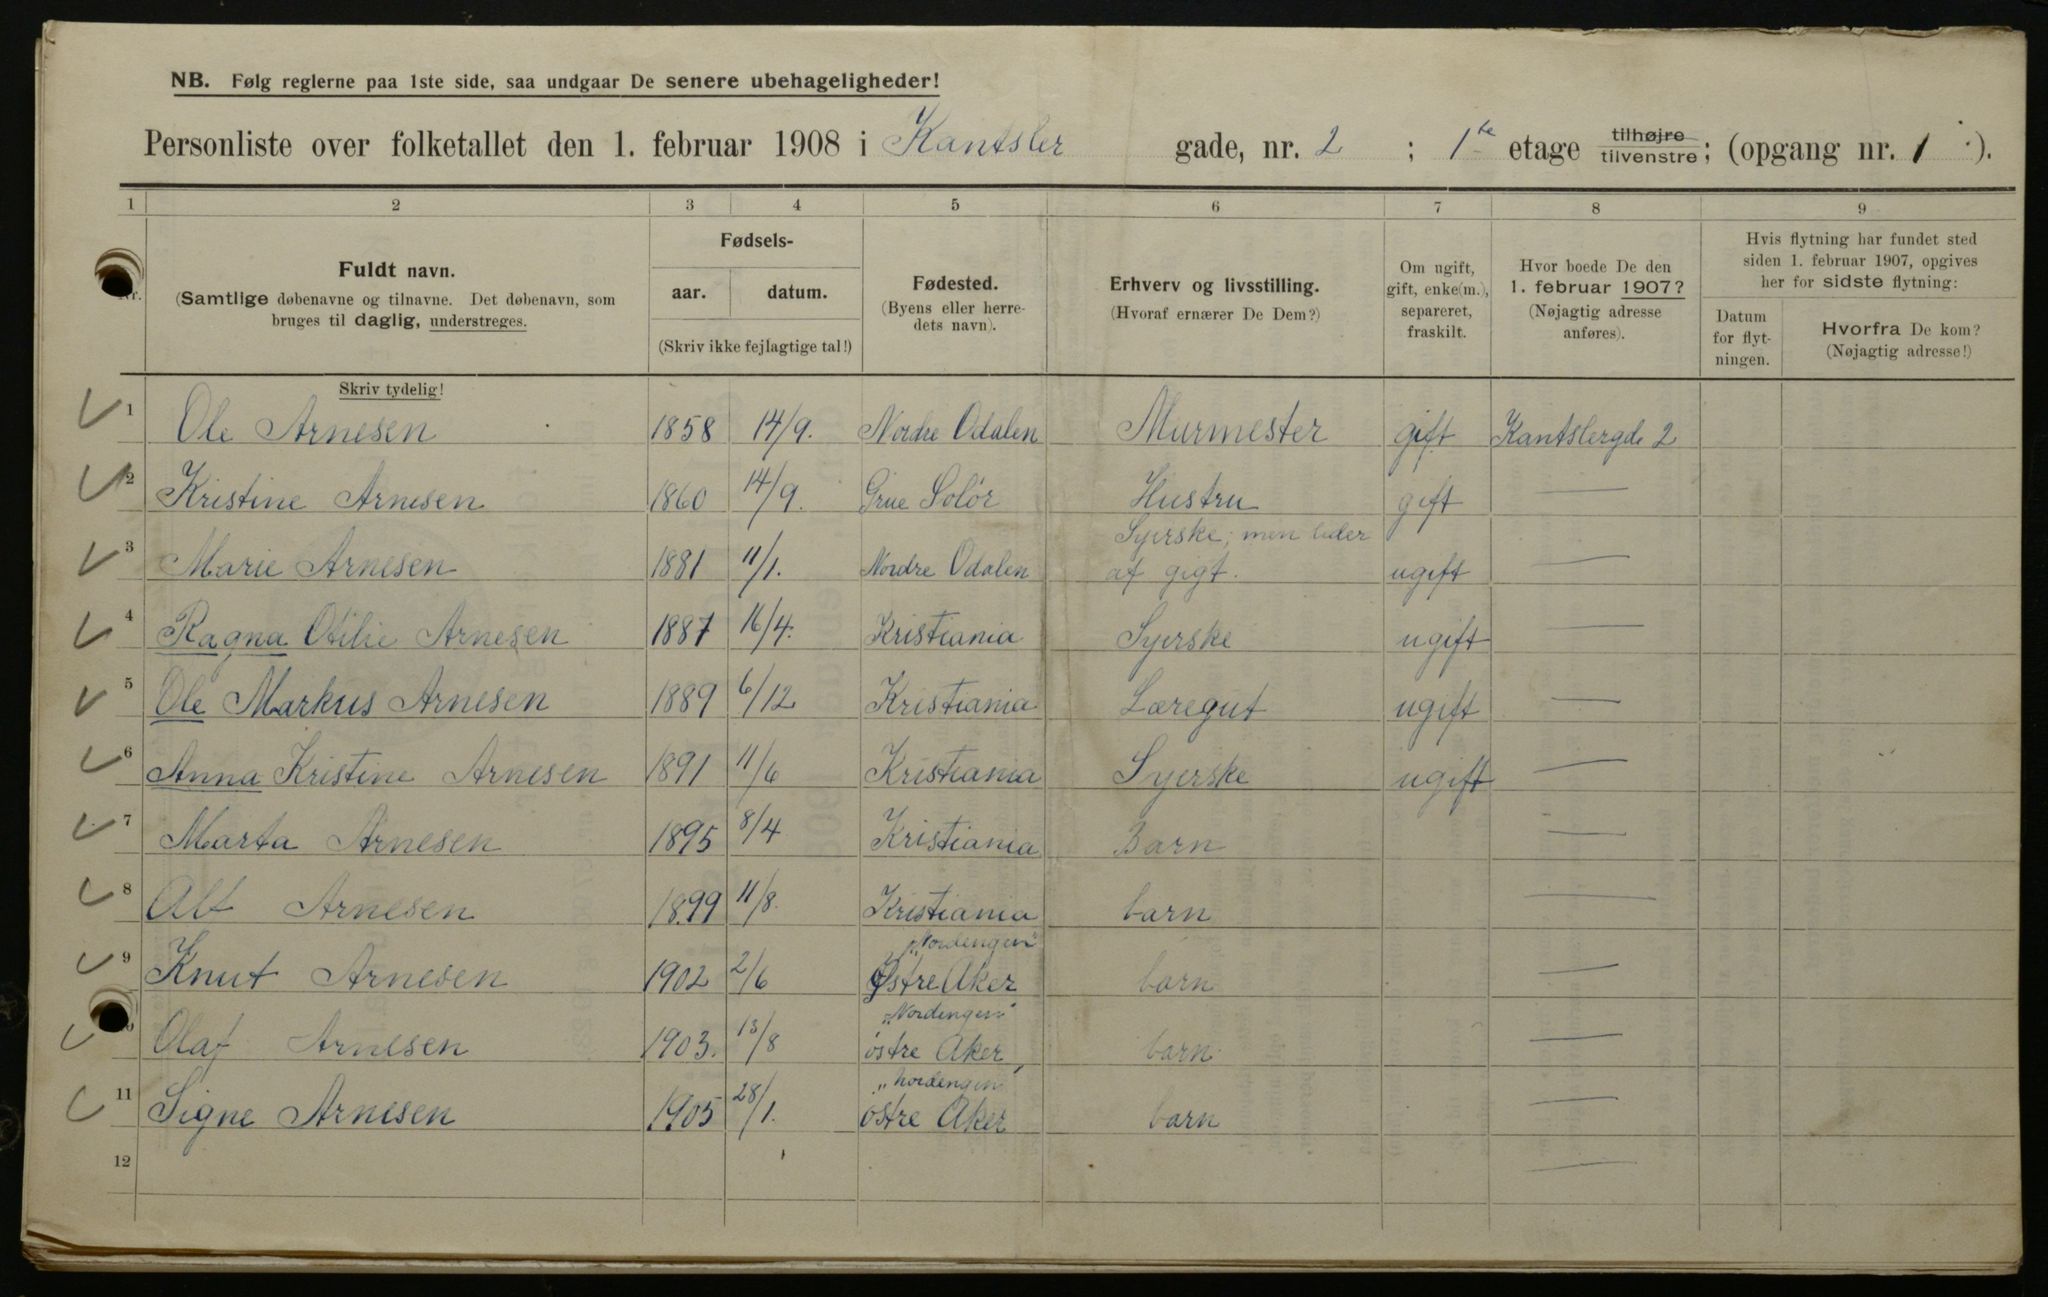 NB. Følg reglerne paa 1ste side, saa undgaar De senere ubehageligheder!
Personliste over folketallet den 1. februar 1908 i Kantsler gade, nr. 2 ; 1ste etage tilhøjre tilvenstre; (opgang nr. 1 ).
1 2 3 4 5 6 7 8 9
Nr.
Fuldt navn.
(Samtlige døbenavne og tilnavne. Det døbenavn, som
bruges til daglig, understreges.
Skriv tydelig!
Fødsels-
aar. datum.
(Skriv ikke fejlagtige tal!)
Fødested.
(Byens eller herre-
dets navn).
Erhverv og livsstilling.
(Hvoraf ernærer De Dem?)
Om ugift,
gift, enke(m.),
separeret,
fraskilt.
Hvor boede De den
1. februar 1907?
(Nøjagtig adresse
anføres).
Hvis flytning har fundet sted
siden 1. februar 1907, opgives
her for sidste flytning:
Datum
for flyt-
ningen.
Hvorfra De kom?
(Nøjagtig adresse!)
1 Ole Arnesen 1858 14/9. Nordre Odalen Murmester gift Kantslergde 2
2 Kristine Arnesen 1860 14/9. Grue Solör Hustru gift —
Syerske; men lider
3 Marie Arnesen 1881 11/1. Nordre Odalen af gigt. ugift —
4 Ragna Otilie Arnesen 1887 16/4. Kristiania Syerske ugift —
5 Ole Markus Arnesen 1889 6/12 Kristiania Læregut ugift —
6 Anna Kristine Arnesen 1891 11/6 Kristiania Syerske ugift —
7 Marta Arnesen 1895 8/4 Kristiania Barn —
8 Alf Arnesen 1899 11/8. Kristiania barn —
"Nordengen"
9 Knut Arnesen 1902 2/6 Østre Aker barn —
"Nordengen"
10 Olaf Arnesen 1903. 13/8 östre Aker barn —
"Nordengen"
11 Signe Arnesen 1905 28/1. östre Aker barn —
12 —